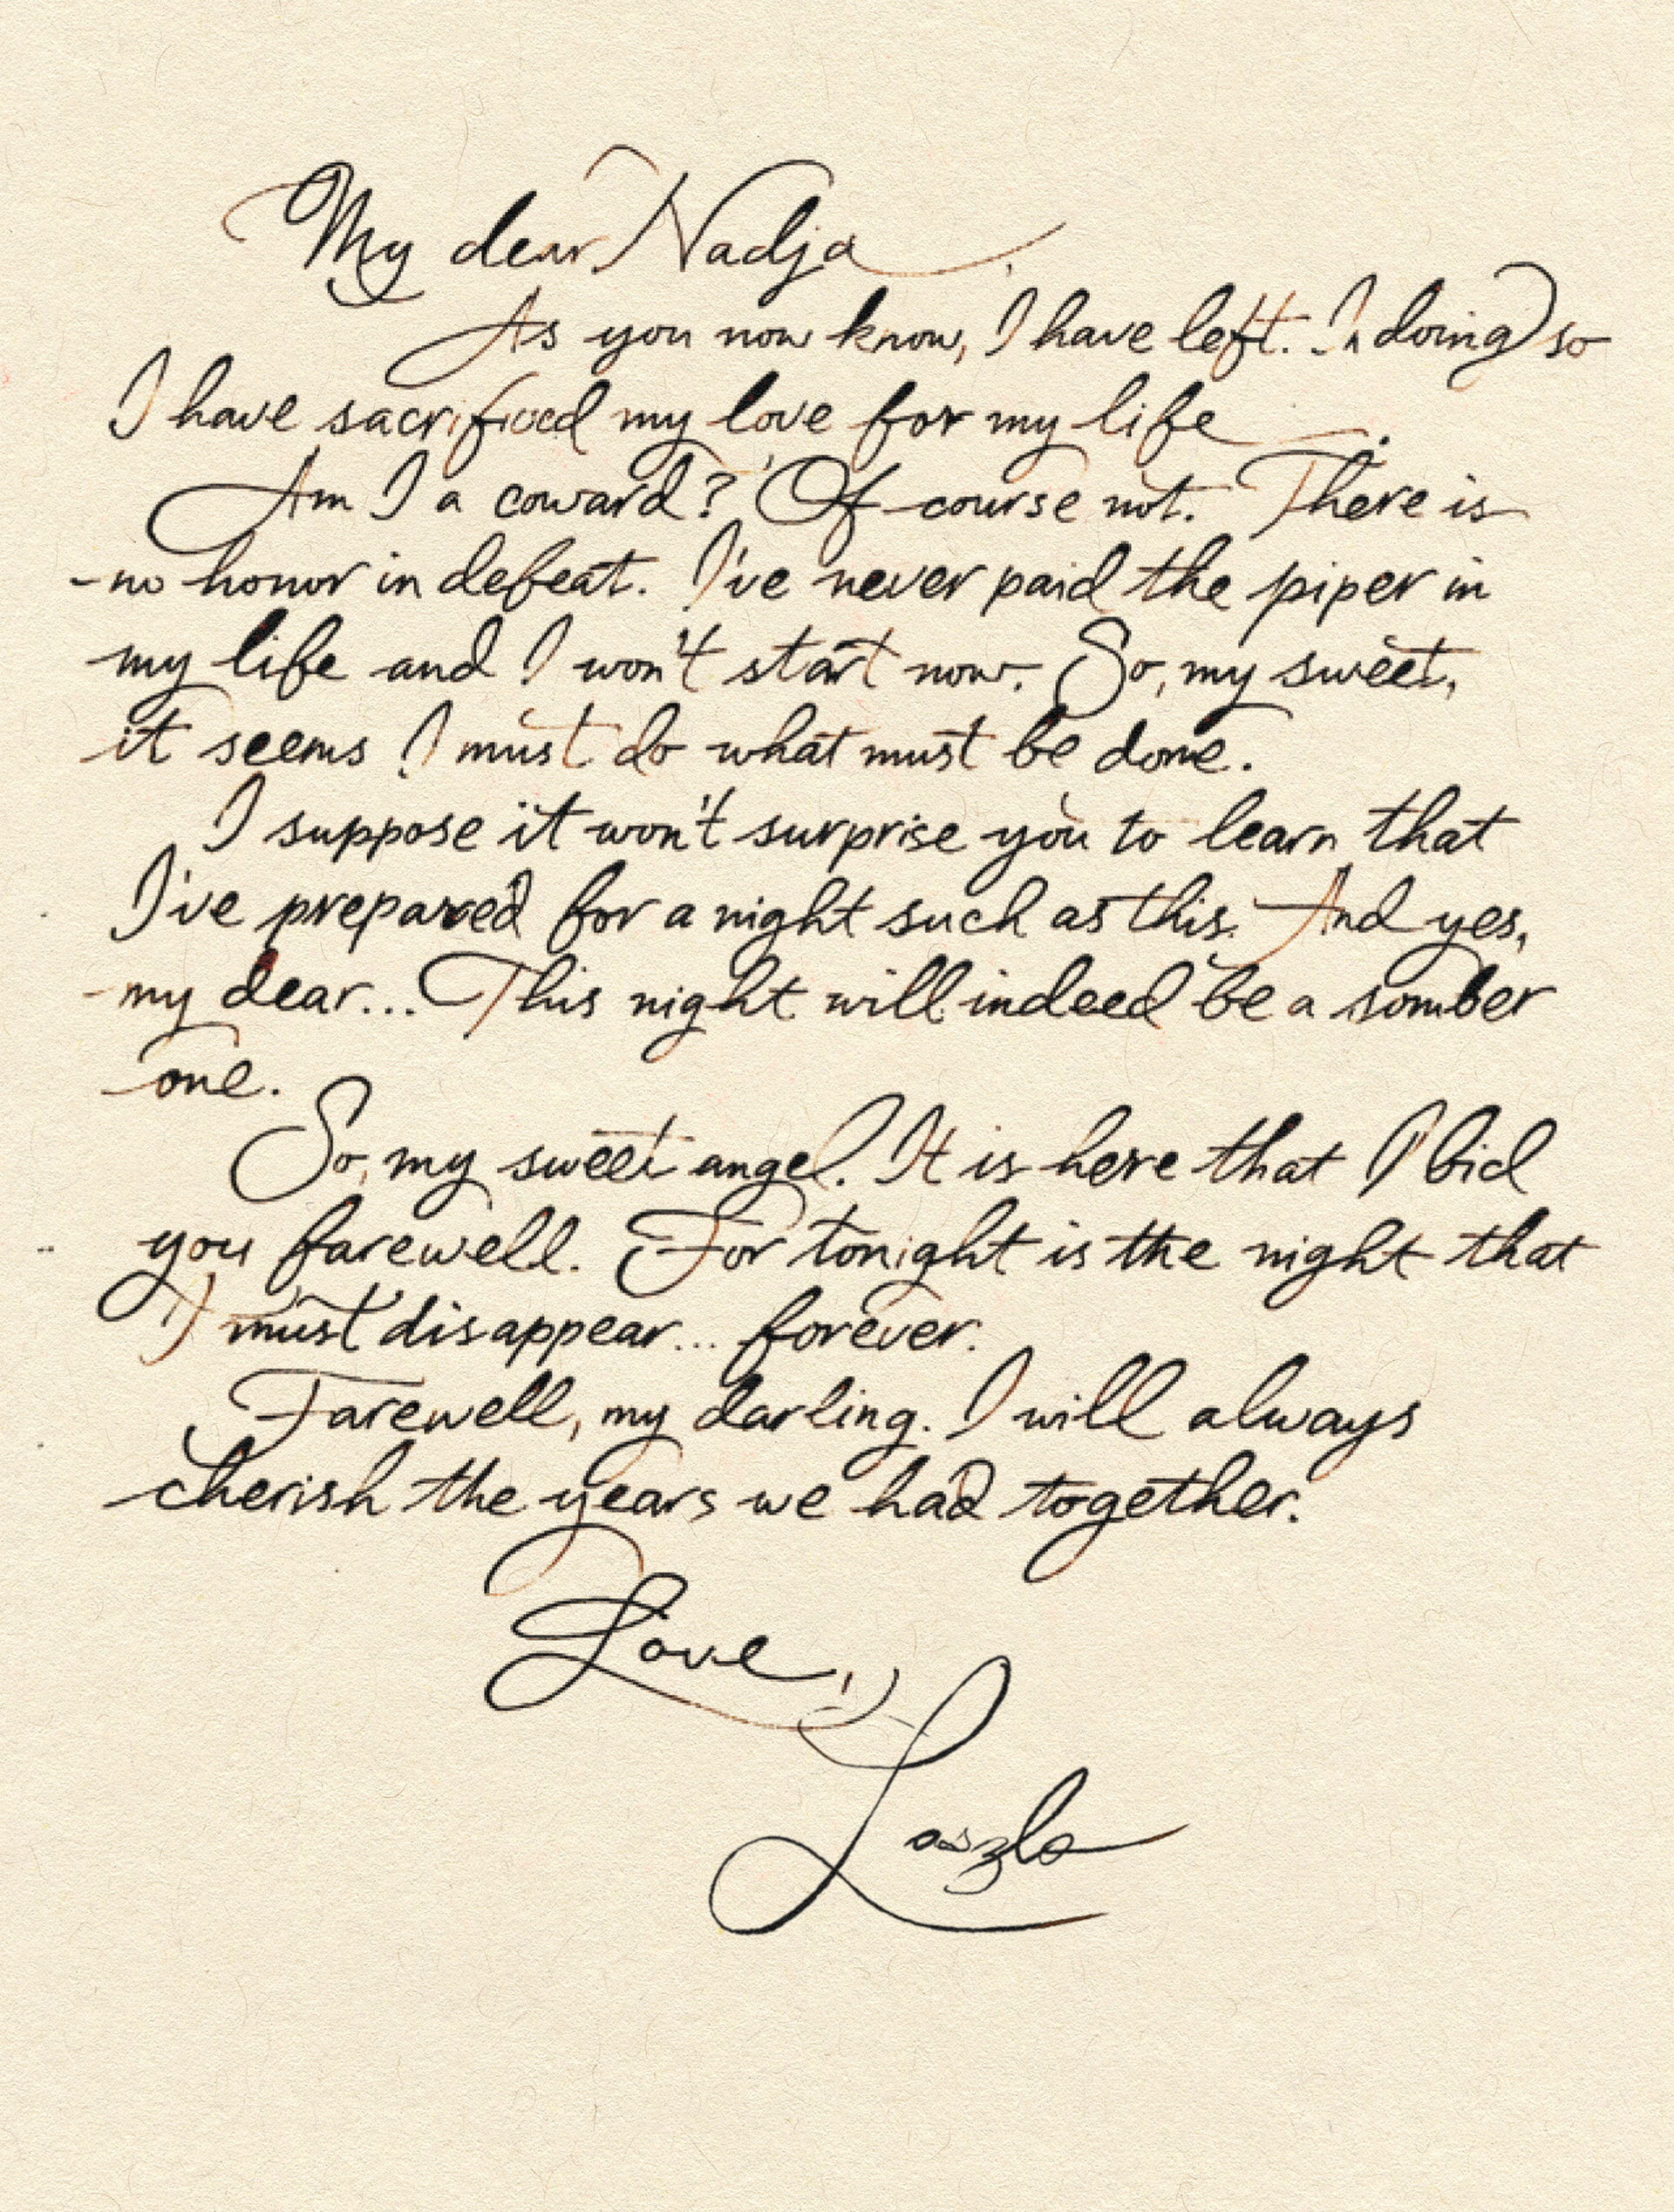 My dear Nadja,
As you now know, I have left. In doing so
I have sacrificed my love for my life.
Am I a coward? Of course not. There is
no honor in defeat. I've never paid the piper in
my life and I won't start now. So, my sweet,
it seems I must do what must be done.
I suppose it won't surprise you to learn that
I've prepared for a night such as this. And yes,
my dear... This night will indeed be a somber
one.
So, my sweet angel. It is here that I bid
you farewell. For tonight is the night that
I must disappear... forever.
Farewell, my darling. I will always
cherish the years we had together.
Love,
Laszlo